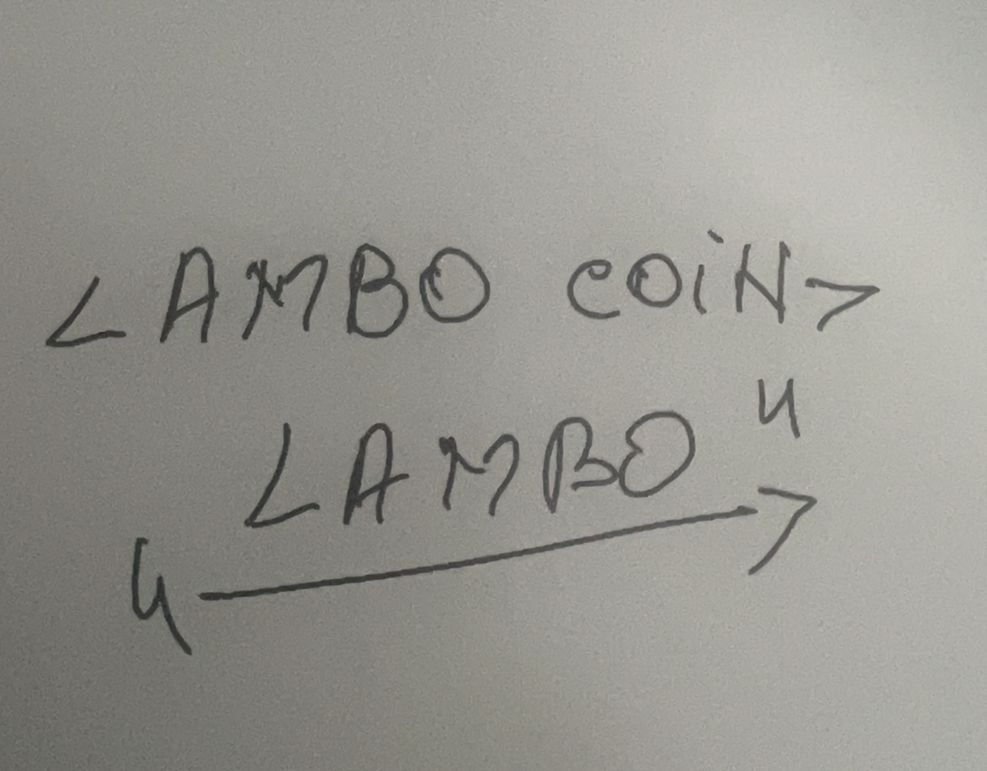 LAMBO COiN>
LAMBO 4
4 →